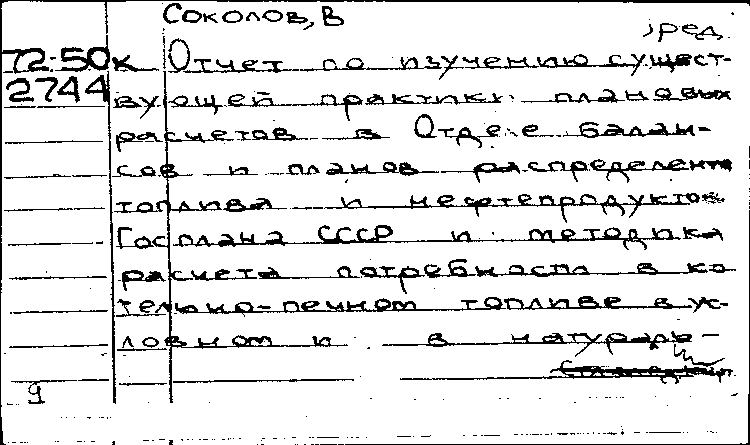 Соколов, В
, ред.
72-50к Отчет по изучению сущест-
2744 вующей практики плановых
расчетов в Отделе балан-
сов и планов распределения
топлива и нефтепродуктов
Госплана СССР и методика
расчета потребности в ко-
тельно-печном топливе в ус-
ловном и в натураль-
9